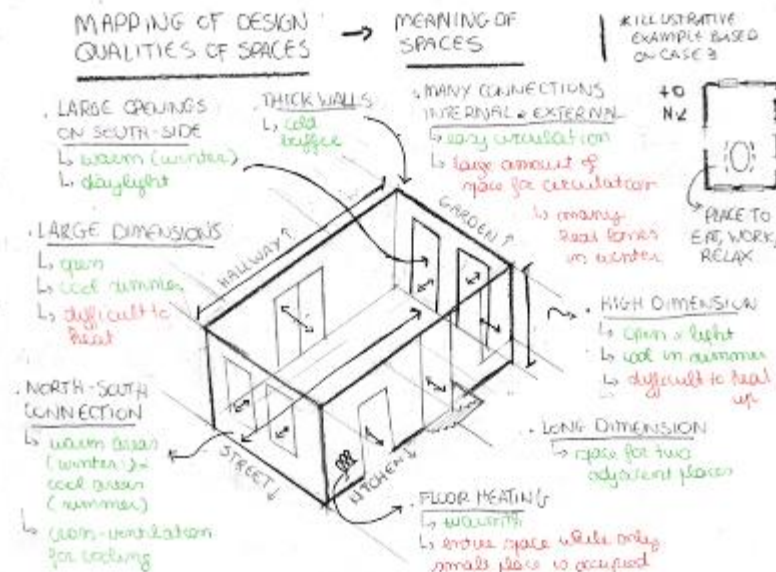 MAPPING OF DESIGN
QUALITIES OF SPACES
→ MEANING OF
SPACES
*ILLUSTRATIVE
EXAMPLE BASED
ON CASE 3
. LARGE OPENINGS
ON SOUTH-SIDE
↳ warm (winter)
↳ daylight
. THICK WALLS
↳ cold
buffer
. MANY CONNECTIONS
INTERNAL & EXTERNAL
↳ easy circulation
↳ large amount of
space for circulation
↳ many
heat losses
in winter
N
PLACE TO
EAT, WORK,
RELAX
. LARGE DIMENSIONS
↳ open
↳ cool summer
↳ difficult to
heat
HALLWAY ↑
GARDEN ↑
STREET ↓
KITCHEN ↓
. HIGH DIMENSION
↳ open & light
↳ cool in summer
↳ difficult to heat
up
. NORTH-SOUTH
CONNECTION
↳ warm areas
(winter) &
cool areas
(summer)
↳ cross-ventilation
for cooling
. LONG DIMENSION
↳ space for two
adjacent places
. FLOOR HEATING
↳ warmth
↳ entire space while only
small place is occupied